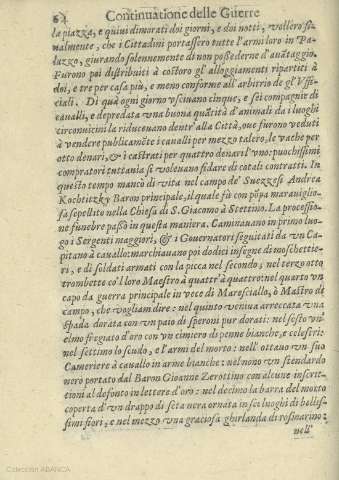 64 Continuatione delle Guerre
la piazza, e quiui dimorati doi giorni, e doi notti, vollero fi-
nalmente, che i Cittadini portassero tutte l'armi loro in Pa-
lazzo, giurando solennemente di non possederne d'auãtaggio.
Furono poi distribuiti à costoro gl'alloggiamenti ripartiti à
doi, e tre per casa più, e meno conforme all'arbitrio de gl'Vffi-
ciali. Di quà ogni giorno vsciuano cinque, e sei compagnie di
caualli, e depredata vna buona quãtità d'animali da i luoghi
circonuicini la riduceuano dentr'alla Città, oue furono veduti
à vendere publicamẽte i caualli per mezzo talero, le vache per
otto denari, & i castrati per quattro denari l'vno: puochissimi
compratori tuttauia si voleuano fidare di cotali contratti. In
questo tempo mancò di vita nel campo de' Suezzesi Andrea
Kochtiezky Baron principale, il quale fù con põpa marauiglio-
sa sepellito nella Chiesa di S. Giacomo à Stettino. La processio-
ne funebre passò in questa maniera. Caminauano in primo luo-
go i Sergenti maggiori, & i Gouernatori seguitati da vn Ca-
pitano à cauallo: marchiauano poi dodici insegne di moschettie-
ri, e di soldati armati con la picca nel secondo; nel terzo otto
trombette co'l loro Maestro à quattr'à quattro: nel quarto vn
capo da guerra principale in vece di Maresciallo, ò Mastro di
campo, che vogliam dire: nel quinto veniua arreccata vna
spada dorata con vn paio di speroni pur dorati: nel sesto vn'
elmo fregiato d'oro con vn cimiero di penne bianche, e celestri:
nel settimo lo scudo, e l'armi del morto: nell'ottauo vn suo
Cameriere à cauallo in arme bianche: nel nono vn stendardo
nero portato dal Baron Gioanne Zerottino con alcune inscrit-
tioni al defonto in lettere d'oro: nel decimo la barra del morto
coperta d'vn drappo di seta nera ornata in sei luoghi di bellis-
simi fiori, e nel mezzo vna graciosa ghirlanda di rosmarino:
nell'
Colección ABANCA